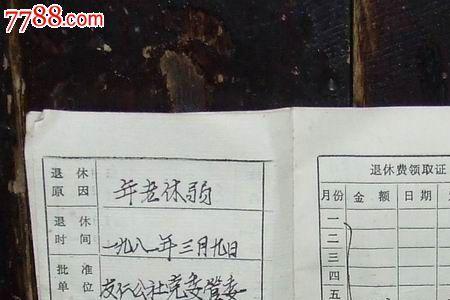 7788.com
退休 原因 年老体弱
退休费领取证
月份 金额 日期
退休 时间 一九八一年三月九日
一
二
三
四
五
批准 单位 友仁公社党委管委